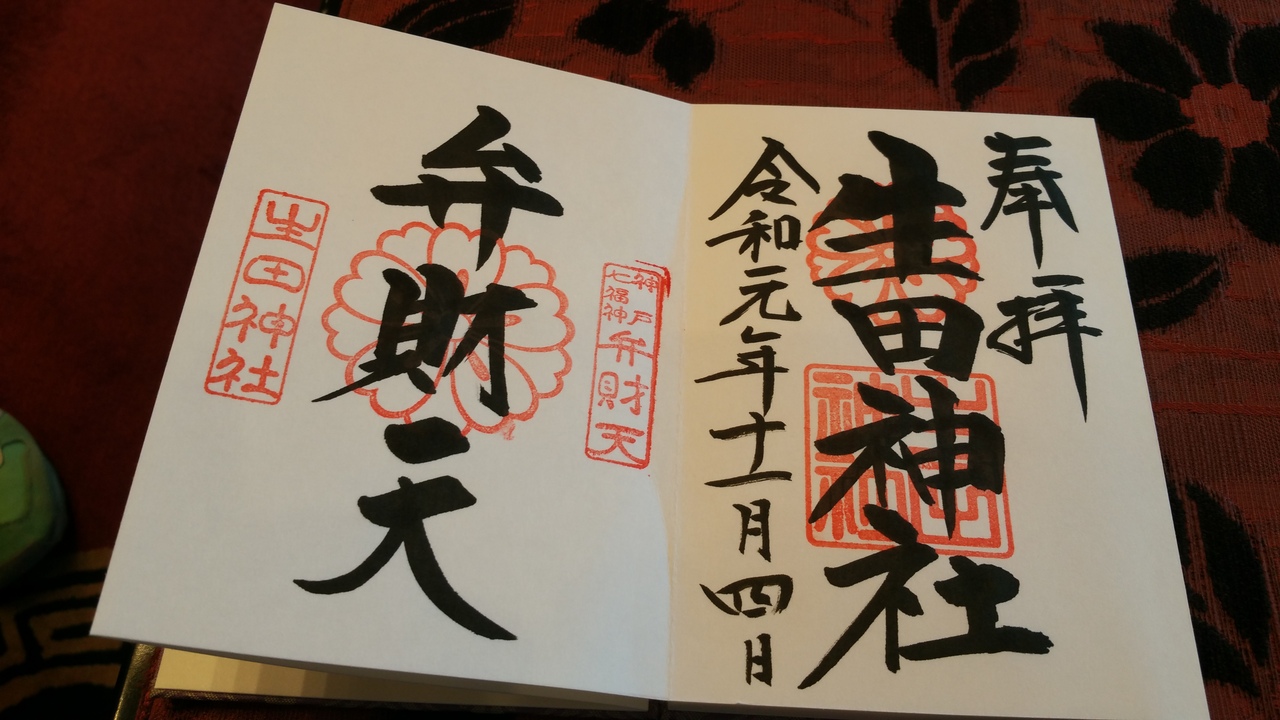 奉拝
生田神社
生田神社
令和元年十一月四日
神戸
七福神
弁財天
弁財天
生田神社